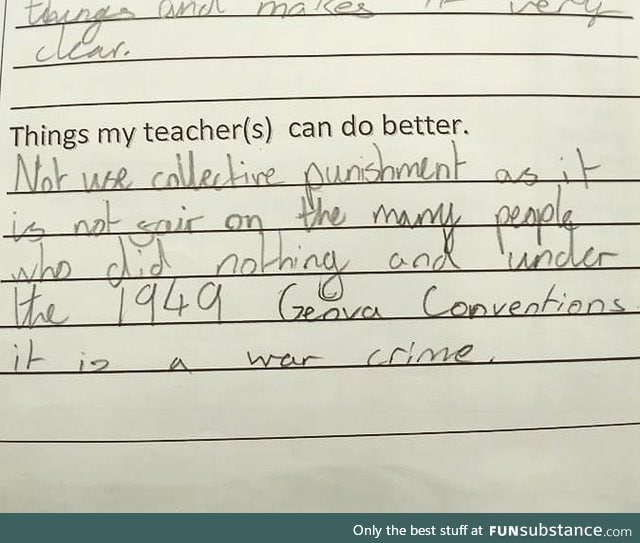 things and makes it very
clear.
Things my teacher(s) can do better.
Not use collective punishment as it
is not fair on the many people
who did nothing and under
the 1949 Geneva Conventions
it is a war crime.
Only the best stuff at FUNsubstance.com